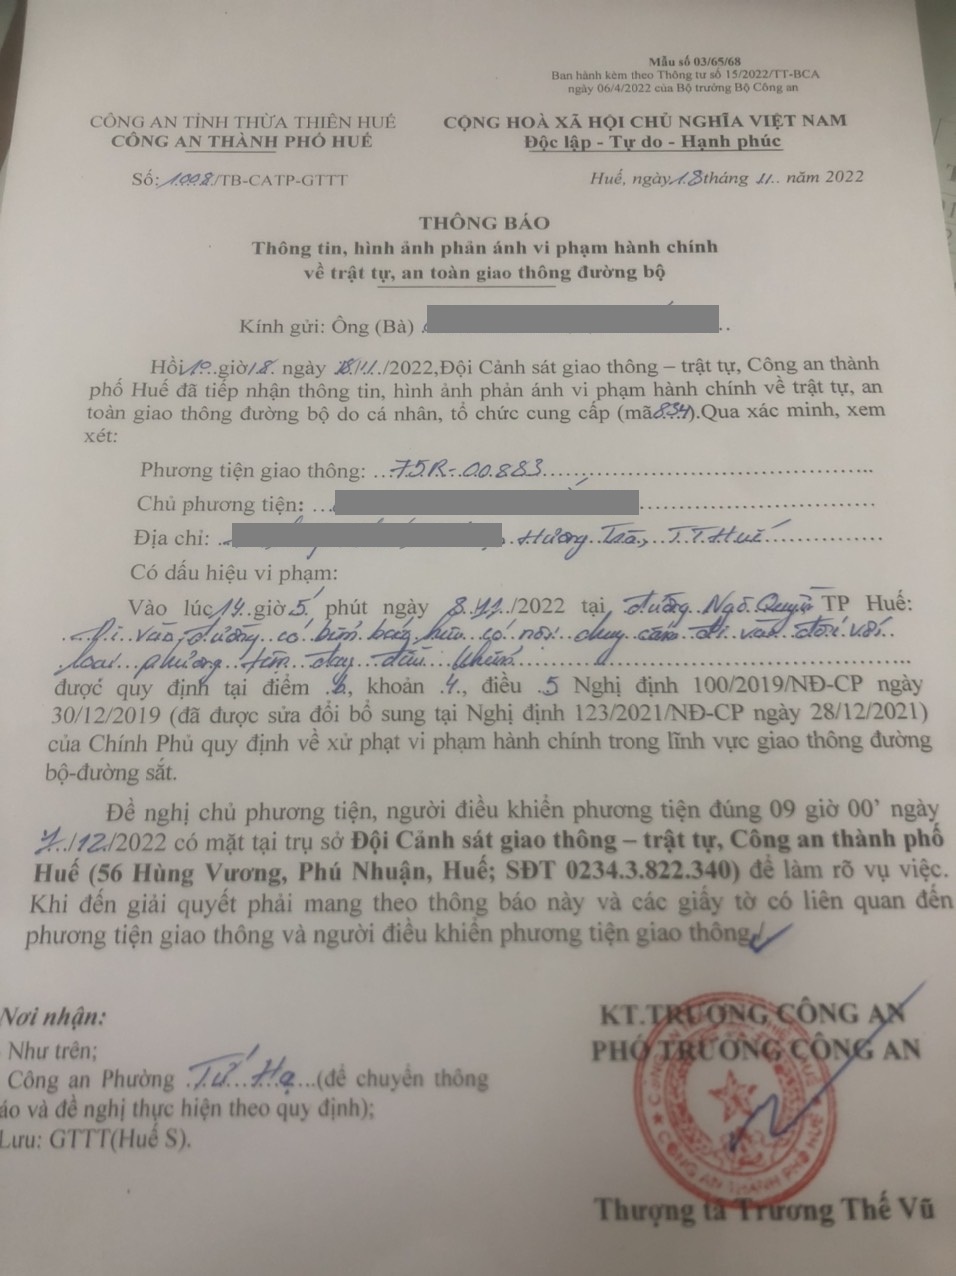 Mẫu số 03/65/68
Ban hành kèm theo Thông tư số 15/2022/TT-BCA
ngày 06/4/2022 của Bộ trưởng Bộ Công an
CÔNG AN TỈNH THỪA THIÊN HUẾ
CÔNG AN THÀNH PHỐ HUẾ
CỘNG HOÀ XÃ HỘI CHỦ NGHĨA VIỆT NAM
Độc lập - Tự do - Hạnh phúc
Số: 1008/TB-CATP-GTTT
Huế, ngày 18 tháng 11 năm 2022
THÔNG BÁO
Thông tin, hình ảnh phản ánh vi phạm hành chính
về trật tự, an toàn giao thông đường bộ
Kính gửi: Ông (Bà)
Hồi 10 giờ 18 ngày /11/2022, Đội Cảnh sát giao thông – trật tự, Công an thành
phố Huế đã tiếp nhận thông tin, hình ảnh phản ánh vi phạm hành chính về trật tự, an
toàn giao thông đường bộ do cá nhân, tổ chức cung cấp (mã 834).Qua xác minh, xem
xét:
Phương tiện giao thông: 75R-00.883
Chủ phương tiện:
Địa chỉ: Hương Trà, T.T.Huế
Có dấu hiệu vi phạm:
Vào lúc 14 giờ 5 phút ngày 8.11./2022 tại đường Ngô Quyền TP Huế:
Đi vào đường có biển báo hiệu có nội dung cấm đi vào đối với
loại phương tiện đang điều khiển
được quy định tại điểm b, khoản 4, điều 5 Nghị định 100/2019/NĐ-CP ngày
30/12/2019 (đã được sửa đổi bổ sung tại Nghị định 123/2021/NĐ-CP ngày 28/12/2021)
của Chính Phủ quy định về xử phạt vi phạm hành chính trong lĩnh vực giao thông đường
bộ-đường sắt.
Đề nghị chủ phương tiện, người điều khiển phương tiện đúng 09 giờ 00' ngày
/12/2022 có mặt tại trụ sở Đội Cảnh sát giao thông – trật tự, Công an thành phố
Huế (56 Hùng Vương, Phú Nhuận, Huế; SĐT 0234.3.822.340) để làm rõ vụ việc.
Khi đến giải quyết phải mang theo thông báo này và các giấy tờ có liên quan đến
phương tiện giao thông và người điều khiển phương tiện giao thông./
Nơi nhận:
Như trên;
Công an Phường Tứ Hạ (để chuyển thông
áo và đề nghị thực hiện theo quy định);
Lưu: GTTT(Huế S).
KT.TRƯỞNG CÔNG AN
PHÓ TRƯỞNG CÔNG AN
CÔNG AN THÀNH PHỐ HUẾ
Thượng tá Trương Thế Vũ